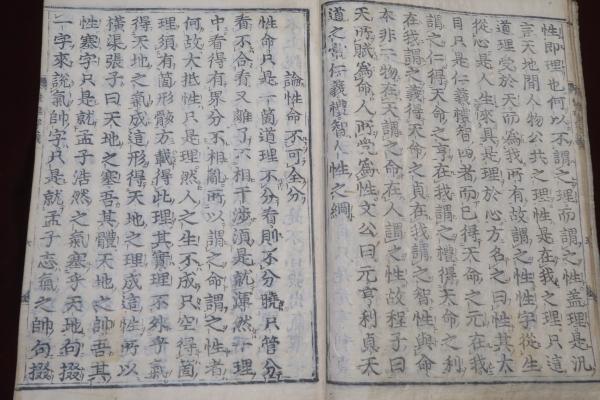 性即理也何以不謂之理而謂之性盖理是汎
言天地間人物公共之理性是在我之理只這
道理受於天而爲我所有故謂之性性字從生
從心是人生來具是理於心方名之曰性其大
目只是仁義禮智四者而已得天命之元在我
謂之仁得天命之亨在我謂之禮得天命之利
在我謂之義得天命之貞在我謂之智性與命
本非二物在天謂之命在人謂之性故程子曰
天所賦為命人所受爲性文公曰元亨利貞天
道之常仁義禮智人性之綱
論性命不可全分
性命只是一箇道理不分看則不分曉只管分
看不合看又離了不相干涉須是就渾然一理
中看得有界分不相亂所以謂之命謂之性者
何故大抵性只是理然人之生不成只空得箇
理須有箇形骸方載得此理其實理不外乎氣
得天地之氣成這形得天地之理成這性所以
橫渠張子曰天地之塞吾其體天地之帥吾其
性塞字只是就孟子浩然之氣塞乎天地句掇
一字來說氣帥字只是就孟子志氣之帥句掇